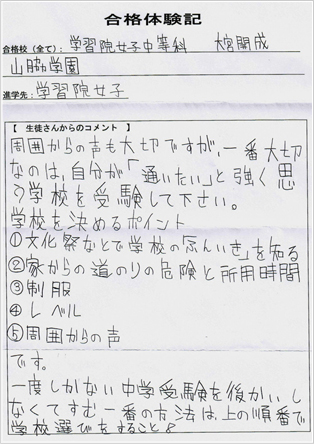 合格体験記
合格校(全て): 学習院女子中等科 大宮開成
山脇学園
進学先: 学習院女子
【 生徒さんからのコメント 】
周囲からの声も大切ですが、一番大切
なのは、自分が「通いたい」と強く思
う学校を受験して下さい。
学校を決めるポイント
①文化祭などで学校の「ふんいき」を知る
②家からの道のりの危険と所用時間
③制服
④レベル
⑤周囲からの声
です。
一度しかない中学受験を後かいし
なくてすむ一番の方法は、上の順番で
学校選びをすること